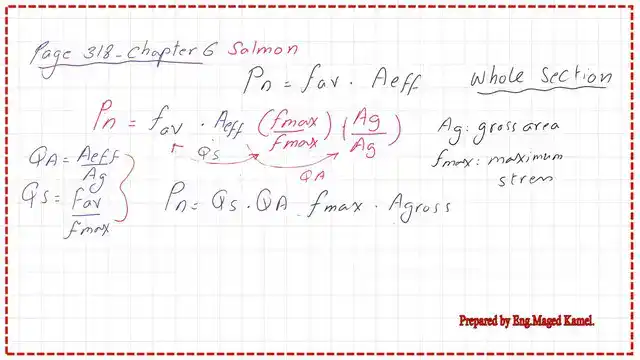 Page 318-Chapter 6 Salmon
Pn = fav . Aeff
Whole Section
Pn = fav . Aeff (fmax/fmax) (Ag/Ag)
QS
QA
Ag: gross area
fmax: maximum
stress
QA = Aeff/Ag
QS = fav/fmax
Pn = QS . QA fmax . Agross
Prepared by Eng.Maged Kamel.